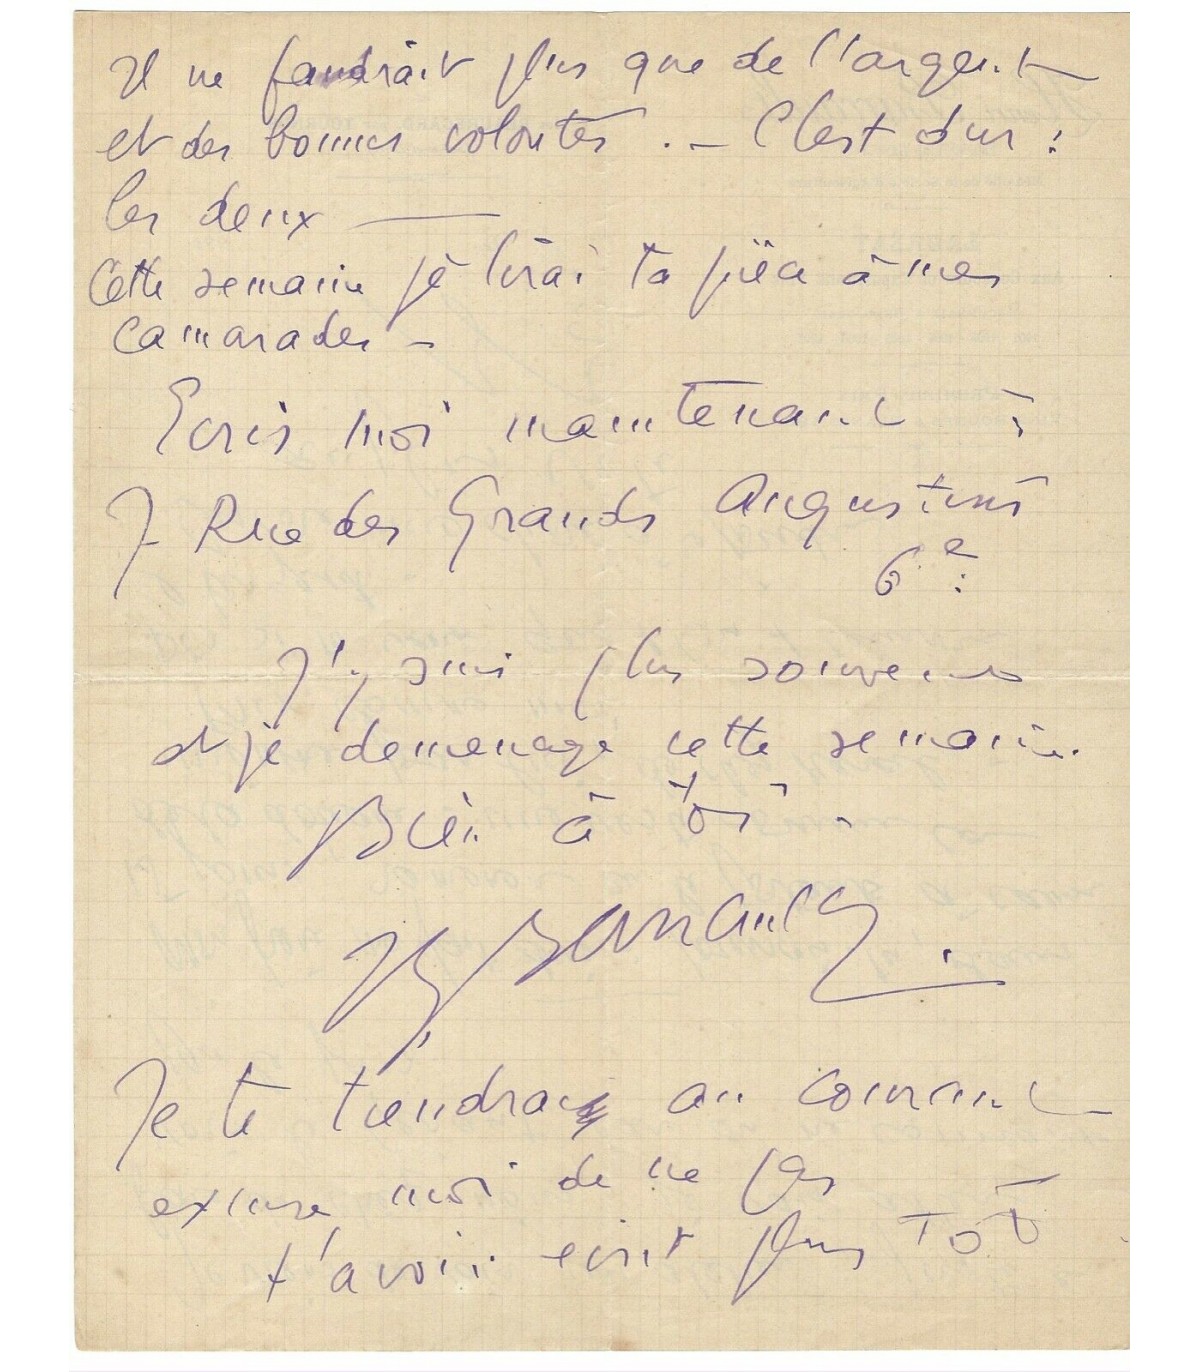 Il ne faudrait plus que de l'argent
et des bonnes volontés . – C'est dur :
les deux —
Cette semaine je lirai ta pièce à mes
camarades –
Ecris moi maintenant à
7 Rue des Grands Augustins
6e :
J'y suis plus souvent
et je demenage cette semaine.
Bien à toi .
JL Barrault .
Je te tiendrai au courant
excuse moi de ne pas
t'avoir ecrit plus tôt